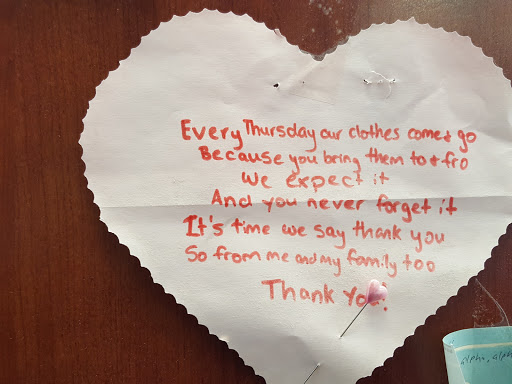 Every Thursday our clothes come & go
Because you bring them to & fro
We expect it
And you never forget it
It's time we say thank you
So from me and my family too
Thank You!
alpha, alph